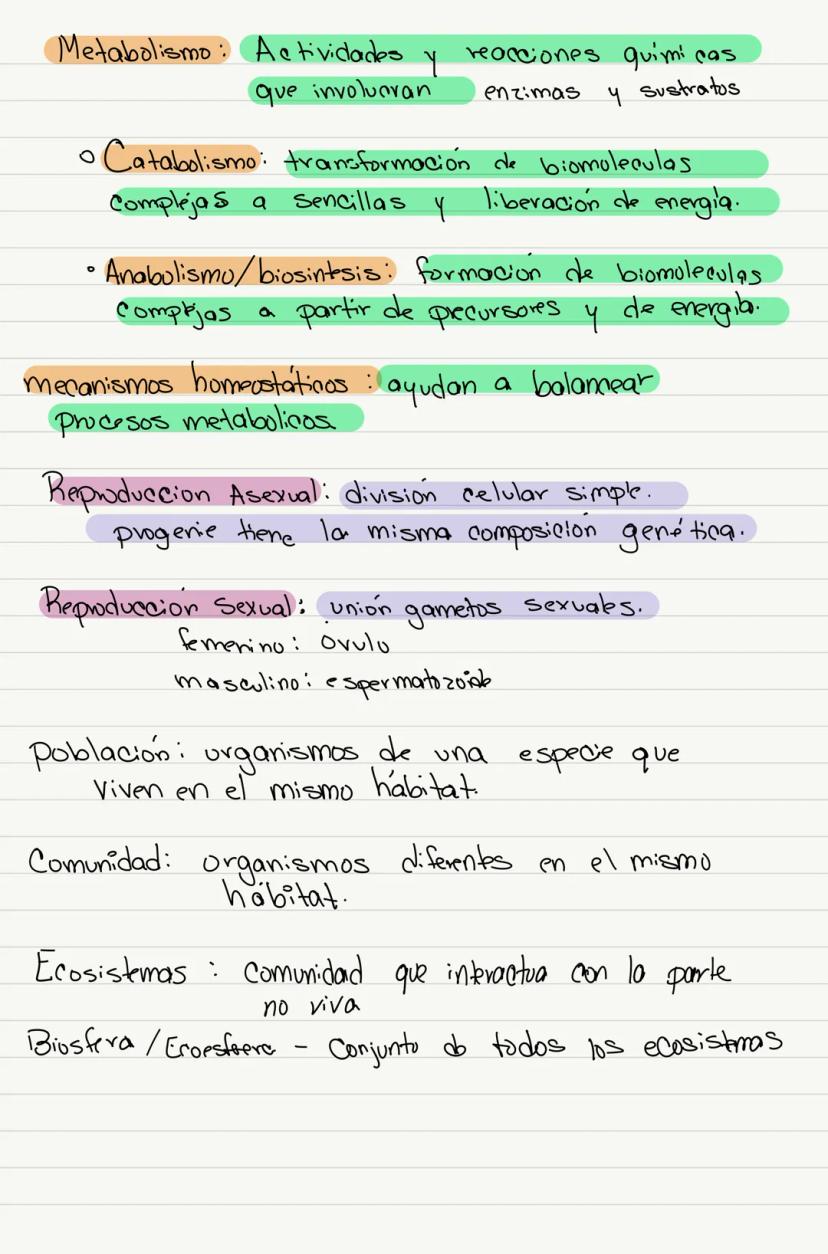 Metabolismo: Actividades y reacciones quimicas
que involucran enzimas y sustratos
Catabolismo: transformación de biomoleculas
complejas a sencillas y liberación de energía.
Anabolismo/biosintesis: formacion de biomoleculas
complejas a partir de precursores y de energía.
mecanismos homeostáticos: ayudan a balancear
procesos metabolicos
Reproduccion Asexual: división celular simple.
progenie tiene la misma composición genética.
Reproducción Sexual: unión gametos sexuales.
femenino: óvulo
masculino: espermatozoide
Población: organismos de una especie que
viven en el mismo hábitat.
Comunidad: organismos diferentes en el mismo
hábitat.
Ecosistemas: comunidad que interactua con la parte
no viva
Biosfera / - Conjunto de todos los ecosistemas